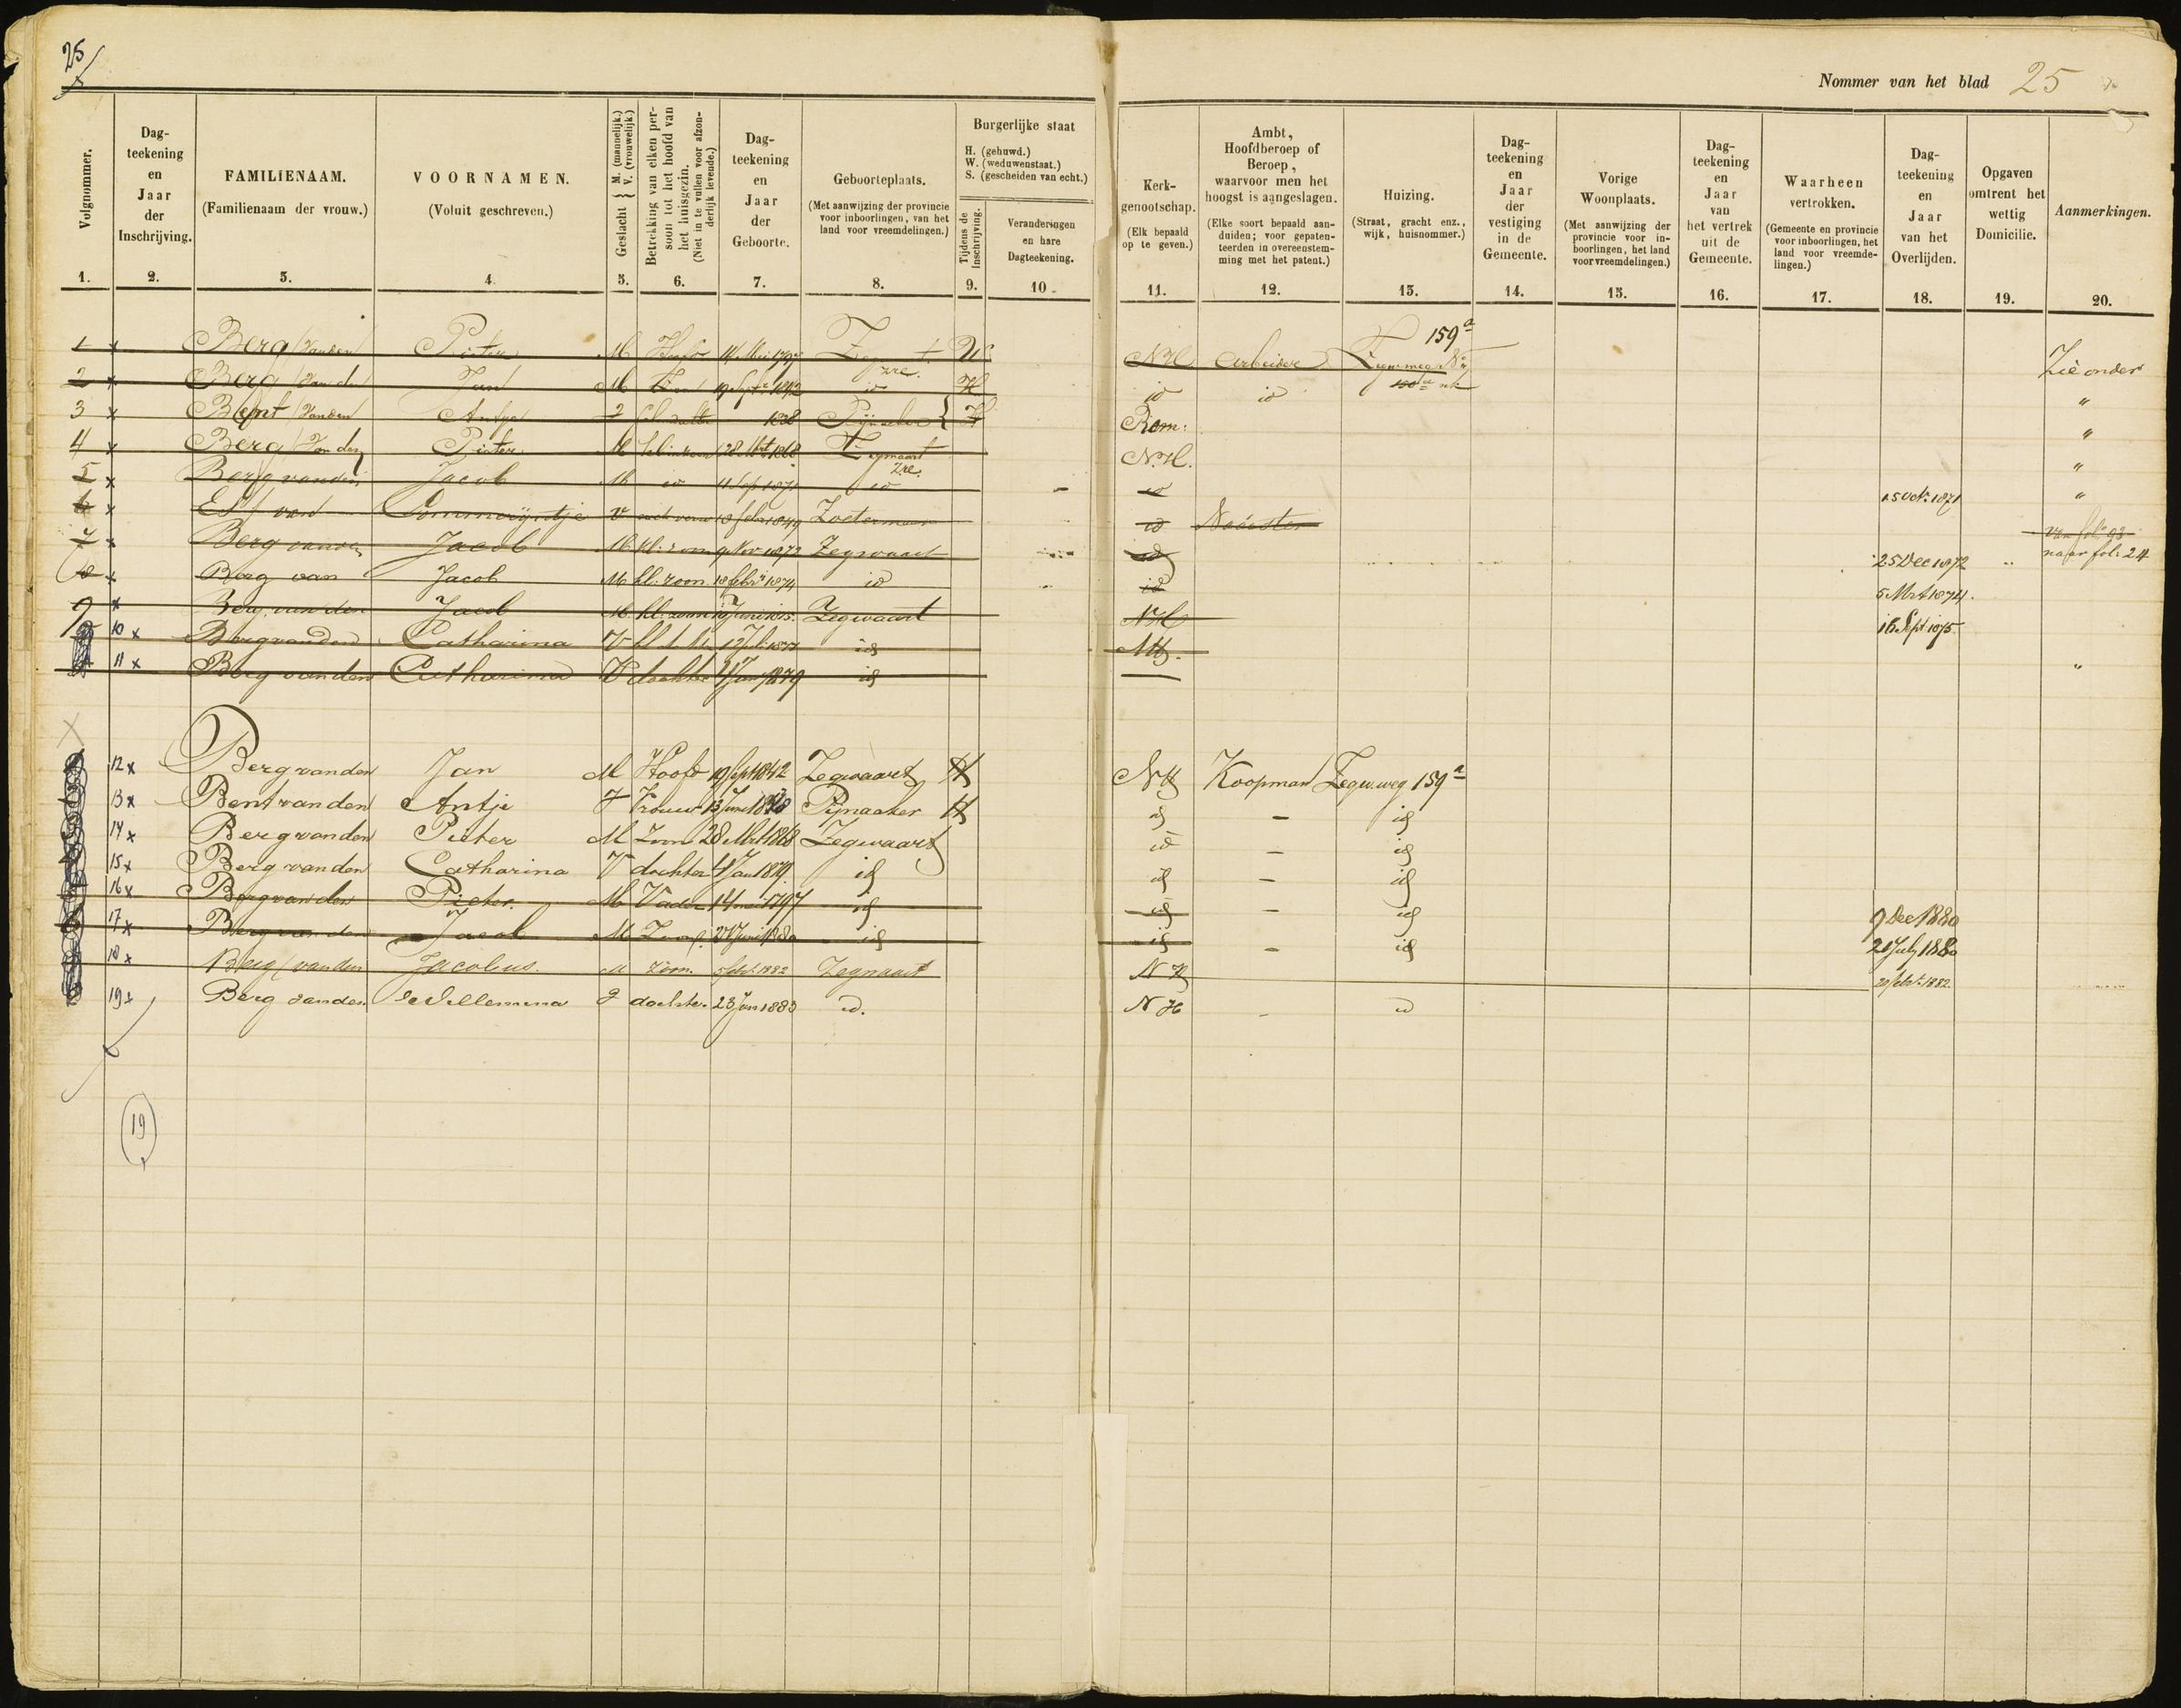 25
Nommer van het blad 25
Volgnommer. 1.
Dag-teekening en Jaar der Inschrijving. 2.
FAMILIENAAM. (Familienaam der vrouw.) 3.
VOORNAMEN. (Voluit geschreven.) 4.
Geslacht { M. (mannelijk.) V. (vrouwelijk.) 5.
Betrekking van elken persoon tot het hoofd van het huisgezin. (Niet in te vullen voor afzonderlijk levende.) 6.
Dag-teekening en Jaar der Geboorte. 7.
Geboorteplaats. (Met aanwijzing der provincie voor inboorlingen, van het land voor vreemdelingen.) 8.
Burgerlijke staat H. (gehuwd.) W. (weduwenstaat.) S. (gescheiden van echt.)
Tijdens de Inschrijving. 9.
Veranderingen en hare Dagteekening. 10
Kerk-genootschap. (Elk bepaald op te geven.) 11.
Ambt, Hoofdberoep of Beroep, waarvoor men het hoogst is aangeslagen. (Elke soort bepaald aanduiden; voor gepatenteerden in overeenstemming met het patent.) 12.
Huizing. (Straat, gracht enz., wijk, huisnommer.) 13.
Dag-teekening en Jaar der vestiging in de Gemeente. 14.
Vorige Woonplaats. (Met aanwijzing der provincie voor inboorlingen, het land voor vreemdelingen.) 15.
Dag-teekening en Jaar van het vertrek uit de Gemeente. 16.
Waarheen vertrokken. (Gemeente en provincie voor inboorlingen, het land voor vreemdelingen.) 17.
Dag-teekening en Jaar van het Overlijden. 18.
Opgaven omtrent het wettig Domicilie. 19.
Aanmerkingen. 20.
1 x Berg (van den Pieter M Hoofd 14 Mei 1797 W N.H. Arbeider 159a Zie onder
2 x Berg (van den Jan M Zoon 19 Sept 1842 id H id id "
3 x Bent (van den Antje 1838 Pijnacker H Rem: "
4 x Berg (van den Pieter M 28 Mrt 1868 Zegwaart N.H. "
5 x Berg van den Jacob M id 11 Sep 1871 id id 15 Oct. 1871 "
6 x Est van Pommerijntje V 18 Febr 1849 Zoetermeer id Naaister van fol: 93 naar fol: 24
7 x Berg van den Jacob M kl: zoon 9 Nov 1872 Zegwaart id 25 Dec 1872
8 x Berg van Jacob M kl: zoon 18 febr 1874 id id 5 Mrt 1874.
9 x Berg van den Jacob M kl. zoon Juni 1875. Zegwaart NH 16 Sept 1875
10 x Berg van den Catharina V 1877 id NH.
11 x Berg van den Catharina V dochter 4 Jan 1879 id "
12 x Berg van den Jan M Hoofd 19 Sept 1842 Zegwaart H NH Koopman Zegw.weg 159a
13 x Bent van den Antje V Vrouw 13 Juni 1838 Pijnacker H id - id
14 x Berg van den Pieter M Zoon 28 Mrt 1868 Zegwaart id - id
15 x Berg van den Catharina V dochter 4 Jan 1879 id id - id
16 x Berg van den Pieter. M Vader 14 mei 1797 id id - id 9 Dec 1880
17 x Berg van den Jacob M Zoon Juni 1880 id id - id 20 July 1880
18 x Berg (van den Jacobus. M Zoon. 5 febr. 1882 Zegwaart NH 20 febr. 1882
19 x Berg van den Willemina V dochter 23 Jan 1883 id. NH - id
19